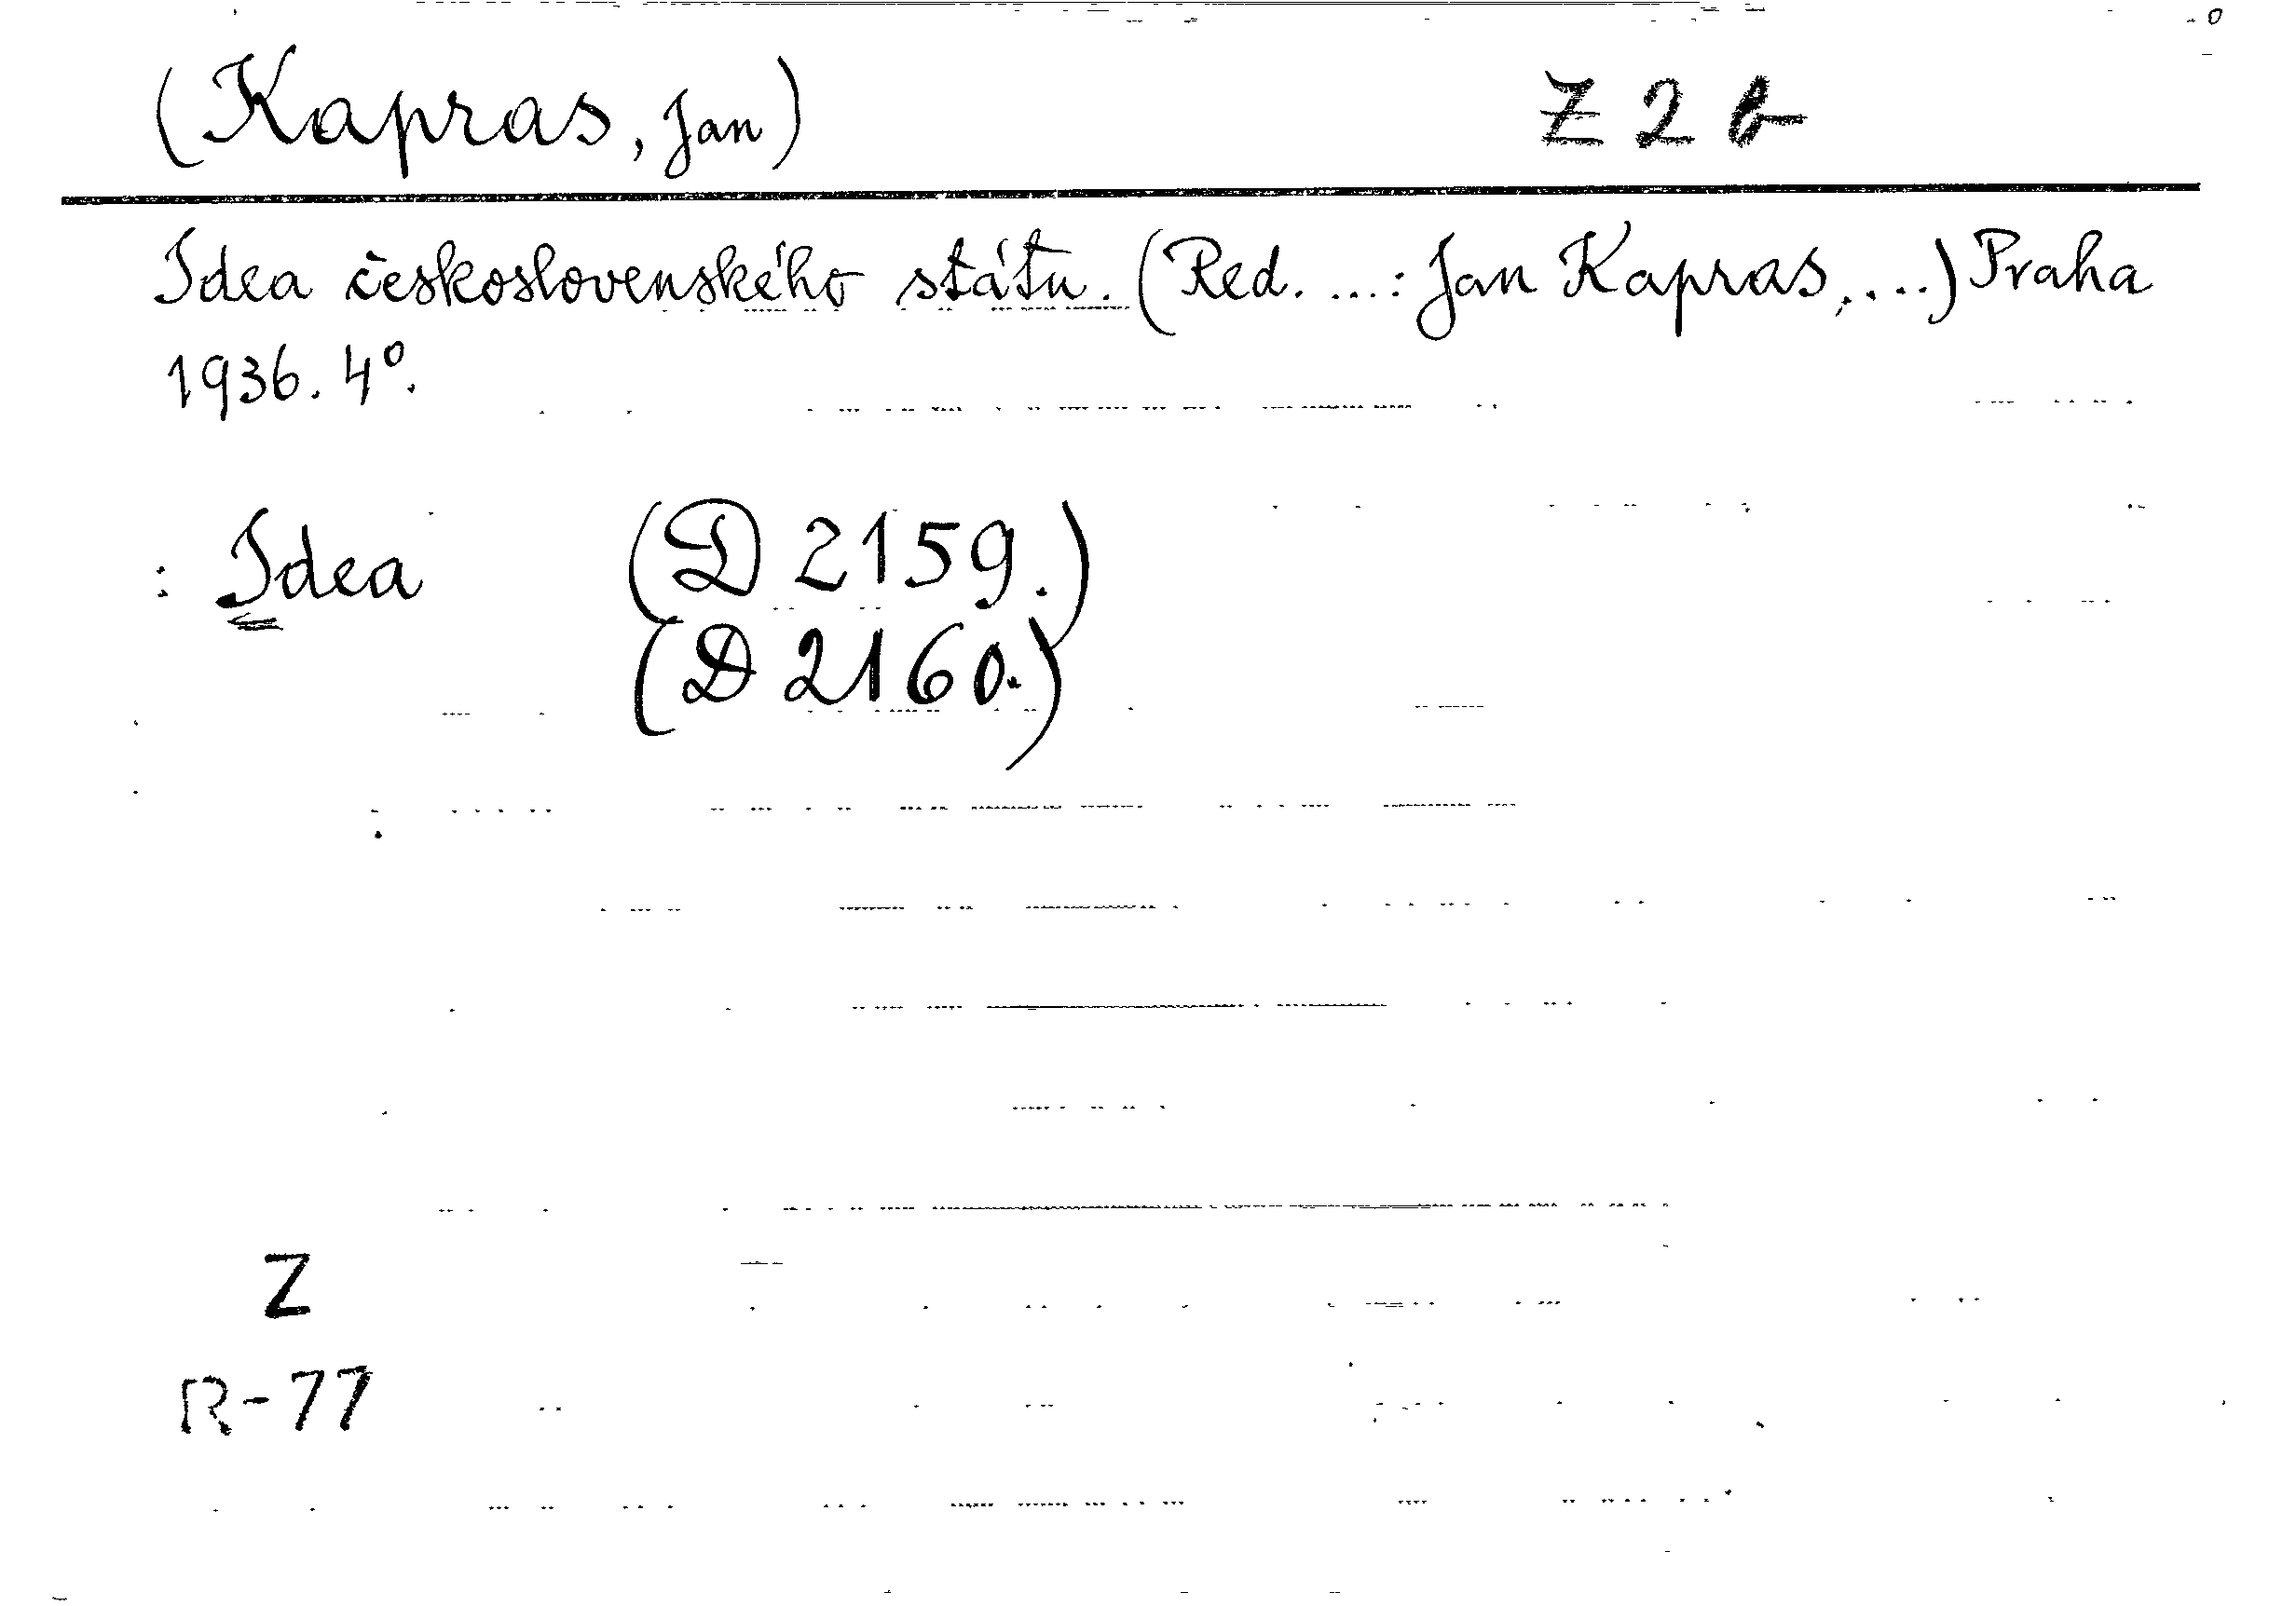 (Kapras, Jan) Z 2 b
Idea československého státu. (Red. ...: Jan Kapras, ...) Praha
1936. 4°.
: Idea (D 2159.)
(D 2160.)
Z
R-77